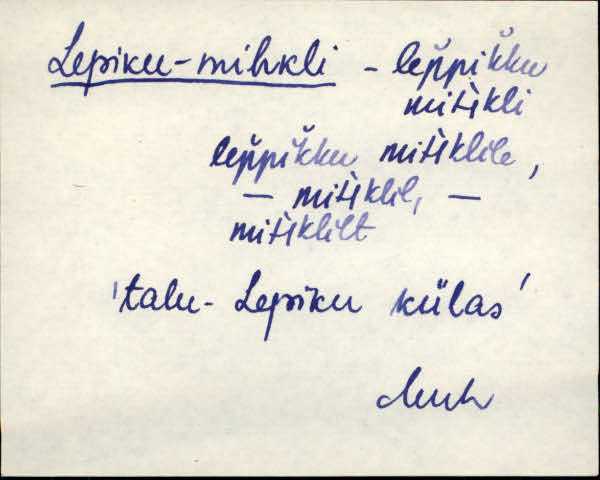 Lepiku-mihkli - lep̆pik̆ku
mih̀kli
lep̆pik̆ku mih̀klile,
— mih̀klil, —
mih̀klilt
'talu - Lepiku külas'